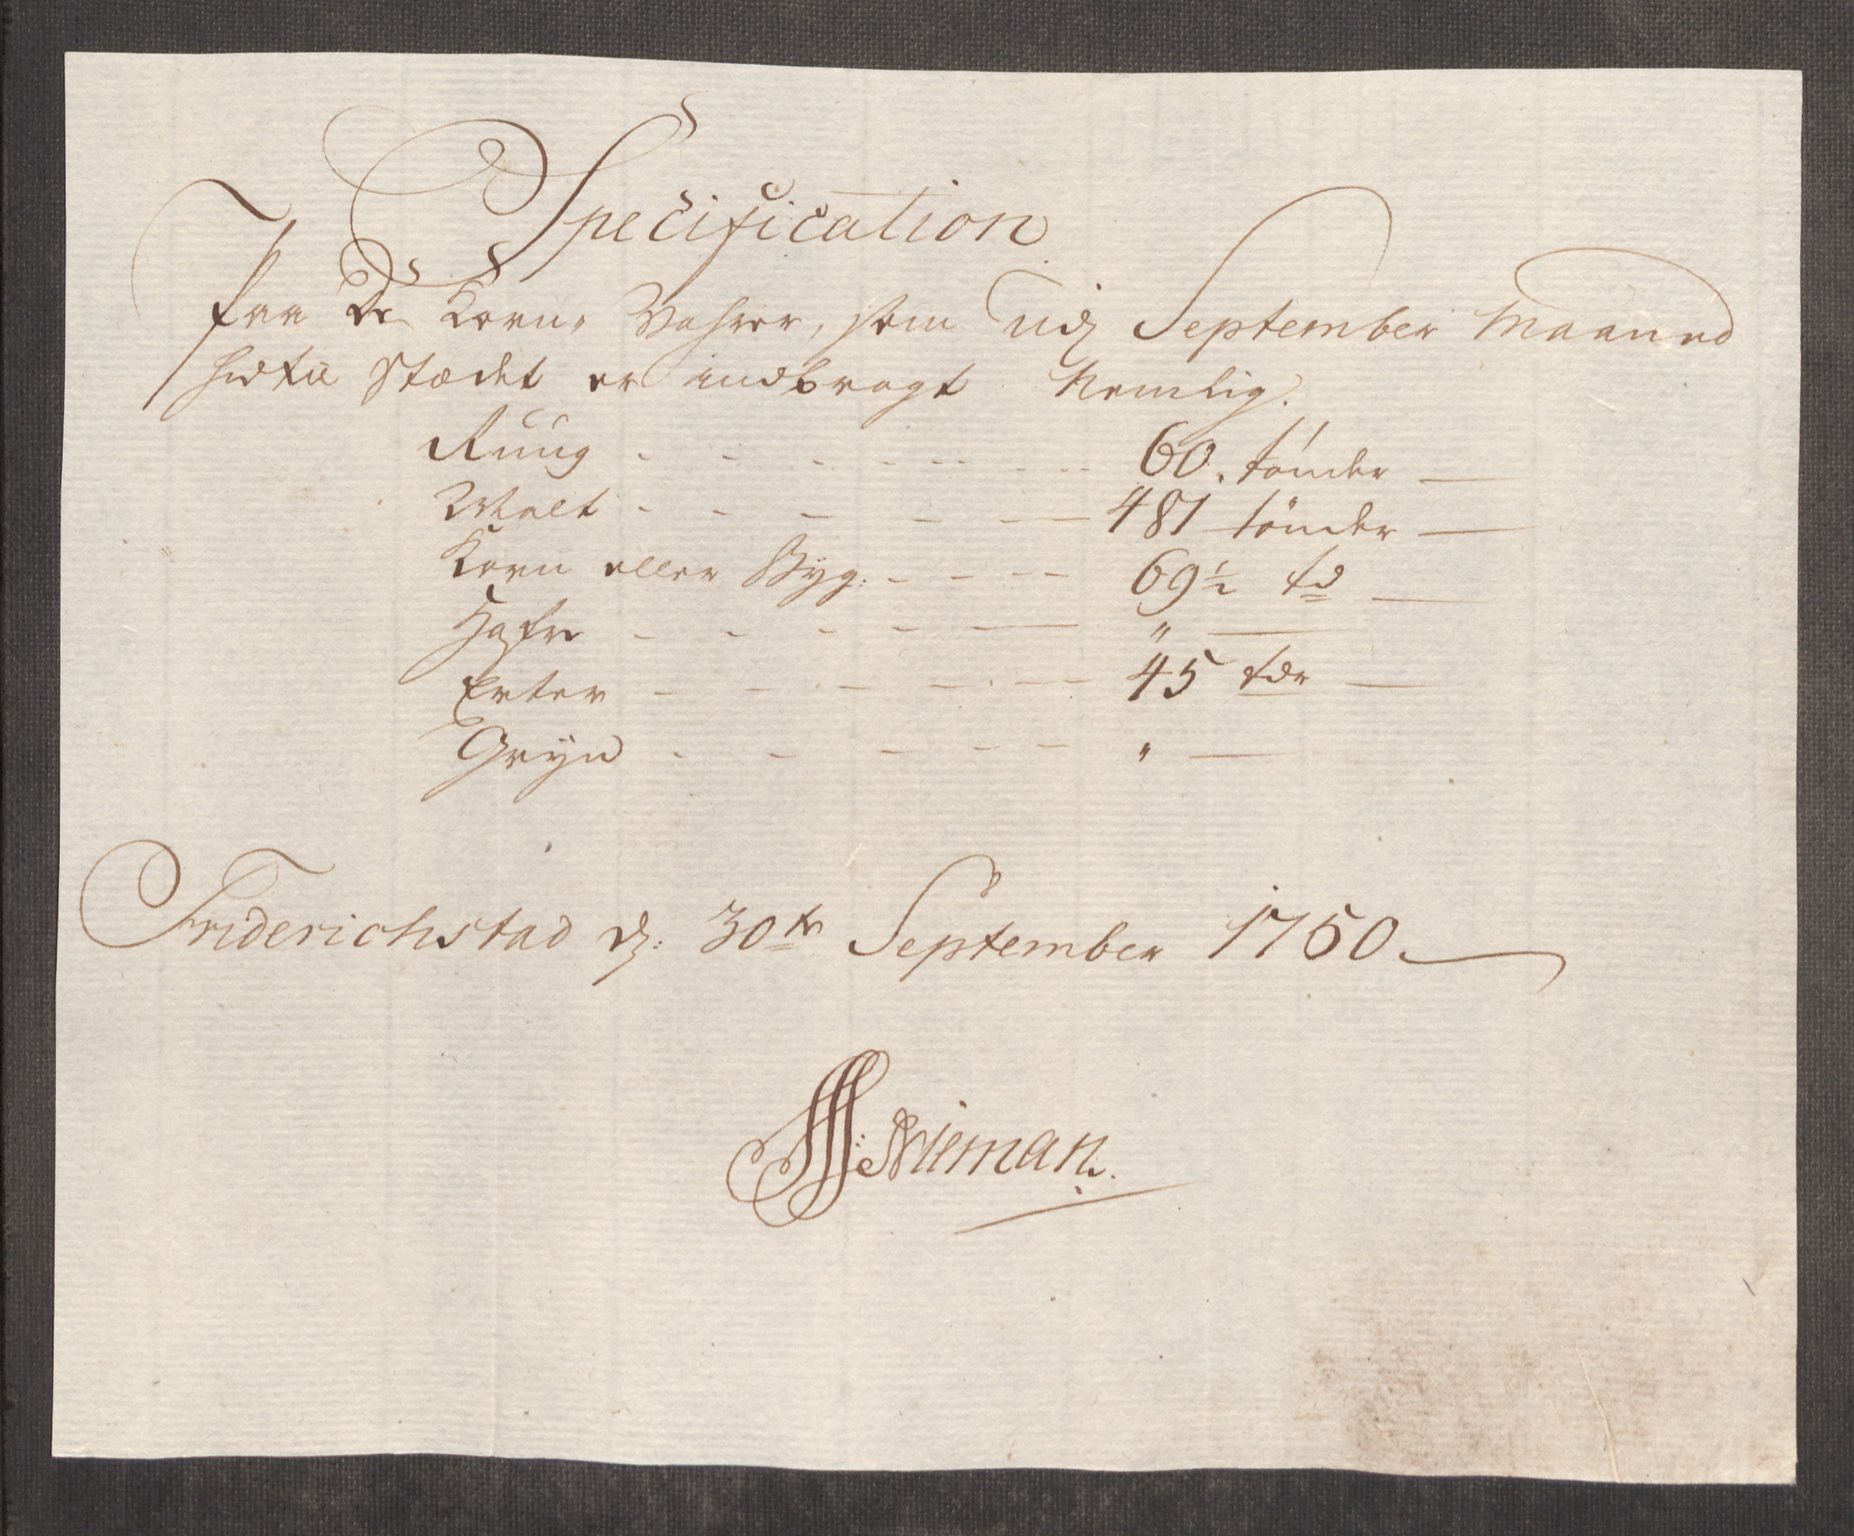 Specification
Paa De Korn, Vahrer, som udj September Maaned
hidtil Stædet er indbragt Nemlig.
Ruug - - - - - - - - 60. tönder —
Malt - - - - - - 481 tönder —
Korn eller Byg: - - - - 69½ td —
Hafre - - - - - " —
Erter - - - - - - 45 tdr —
Gryn - - - - - " —
Friderichstad d: 30te September 1760
Nieman.